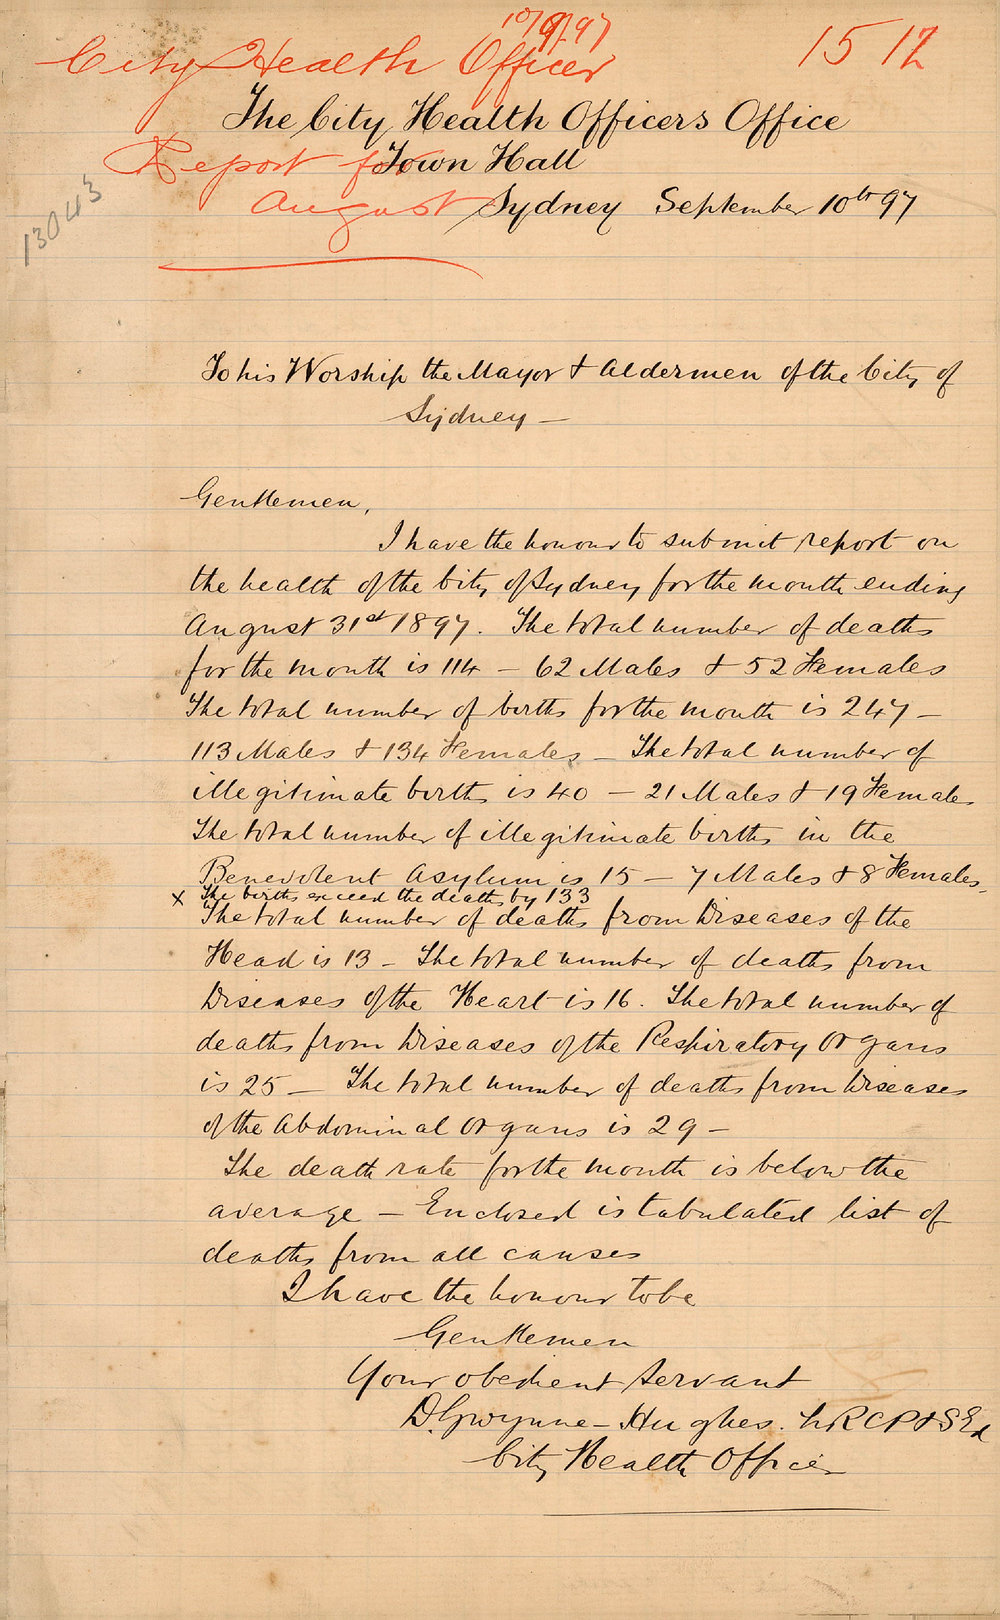 10/9/97
City Health Officer
15 12
The City Health Officers Office
Report for
Town Hall
August
Sydney September 10th 97
13043
To his Worship the Mayor & Aldermen of the City of
Sydney —
Gentlemen,
I have the honour to submit report on
the health of the City of Sydney for the month ending
August 31st 1897. The total number of deaths
for the month is 114 — 62 Males & 52 Females
The total number of births for the month is 247 —
113 Males & 134 Females — The total number of
illegitimate births is 40 — 21 Males & 19 Females
The total number of illegitimate births in the
Benevolent Asylum is 15 — 7 Males & 8 Females —
x The births exceed the deaths by 133
The total number of deaths from Diseases of the
Head is 13 — The total number of deaths from
Diseases of the Heart is 16. The total number of
deaths from Diseases of the Respiratory Organs
is 25 — The total number of deaths from Diseases
of the Abdominal Organs is 29 —
The death rate for the month is below the
average — Enclosed is tabulated list of
deaths from all causes
I have the honour to be
Gentlemen
Your obedient Servant
D. Gwynne-Hughes. LRCP&S Ed
City Health Officer